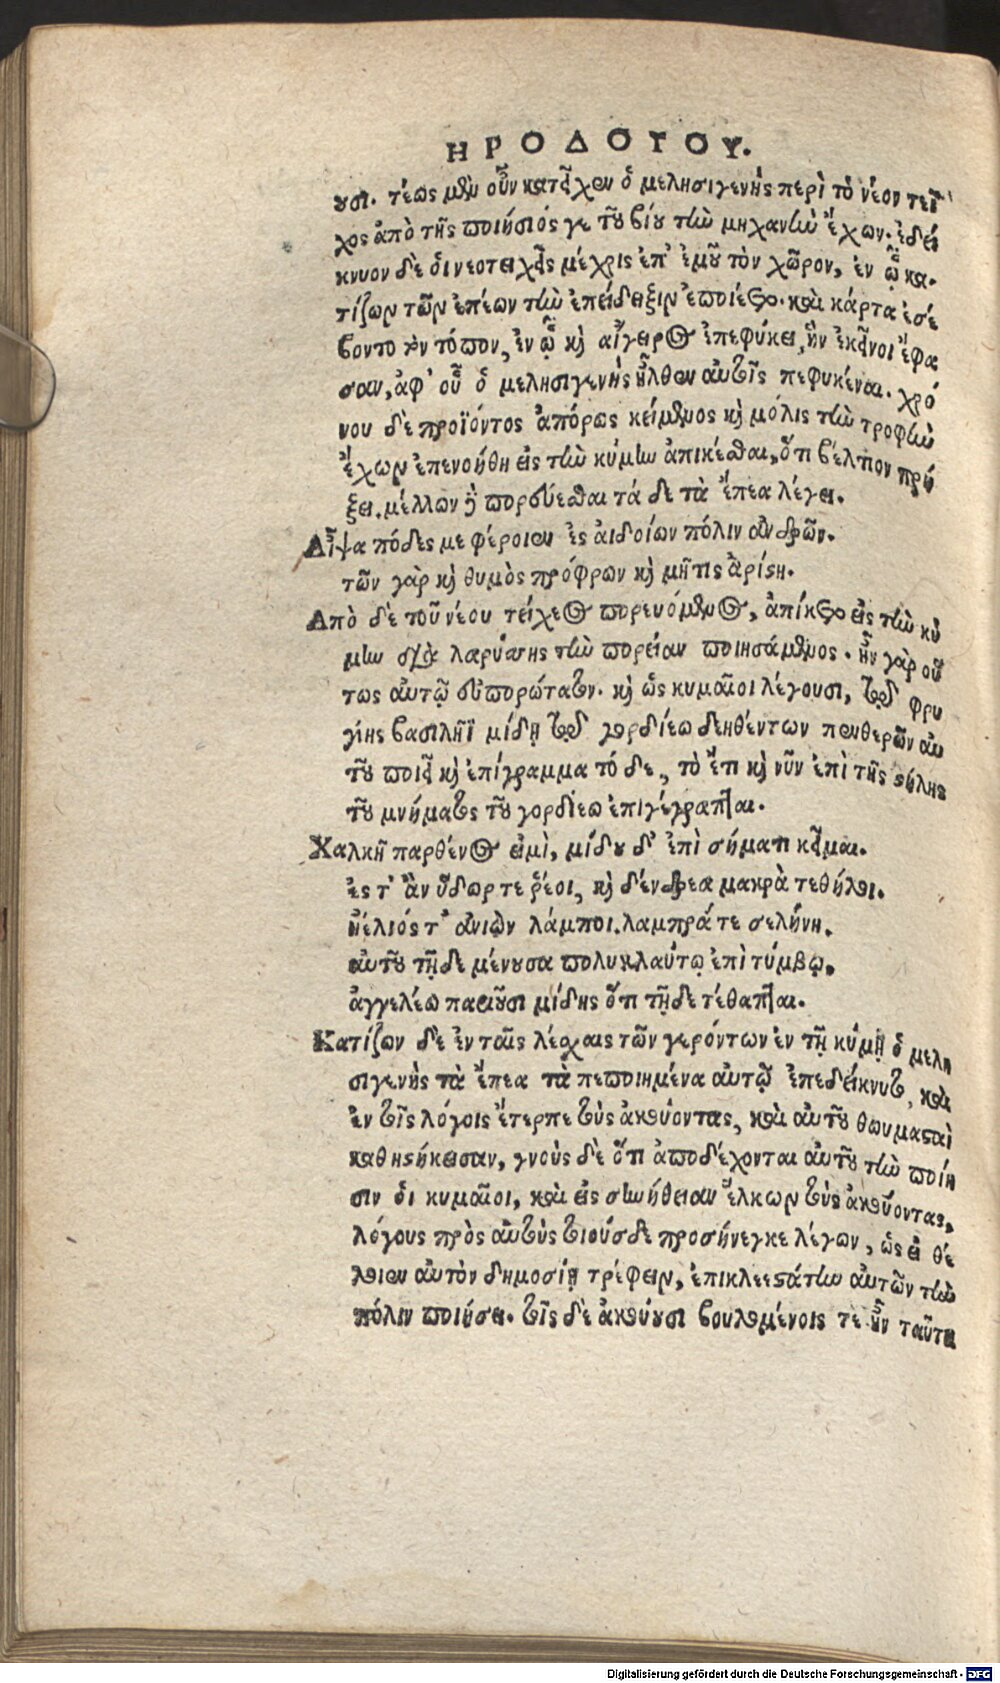 ΗΡΟΔΟΤΟΥ.
ουσι. τέως μὲν οὖν κατεῖχεν ὁ μελησιγενὴς περὶ τὸ νέον τεῖ
χος ἀπὸ τῆς ποιήσιός γε τοῦ βίου τὴν μηχανὴν ἔχων. ἐδεί
κνυον δὲ ὁι νεοτειχεῖς μέχρις ἐπ' ἐμοῦ τὸν χῶρον, ἐν ᾧ κα-
τίζων τῶν ἐπέων τὴν ἐπείδειξιν ἐποιέετο. καὶ κάρτα ἐσέ
βοντο τὸν τόπον, ἐν ᾧ καὶ αἴγειρος ἐπεφύκει, ἣν ἐκεῖνοι ἔφα
σαν, ἀφ' οὗ ὁ μελησιγενὴς ἦλθεν αὐτοῖς πεφυκέναι. χρό
νου δὲ προϊόντος ἀπόρως κείμενος καὶ μόλις τὴν τροφὴν
ἔχων ἐπενοήθη εἰς τὴν κύμην ἀπικέσθαι, ὅτι βέλτιον πρή
ξει. μέλλων δὲ πορεύεσθαι τά δε τὰ ἔπεα λέγει.
Αἶψα πόδες με φέροιεν ἐς αἰδοίων πόλιν ἀνδρῶν.
τῶν γὰρ καὶ θυμὸς πρόφρων καὶ μῆτις ἀρίστη.
Ἀπὸ δὲ τοῦ νέου τείχεος πορευόμενος, ἀπίκετο εἰς τὴν κύ
μην διὰ λαρύσσης τὴν πορείαν ποιησάμενος. ἦν γὰρ οὕ
τως αὐτῷ εὐπορώτατον. καὶ ὡς κυμαῖοι λέγουσι, τῷ φρυ
γίης βασιλῆϊ μίδῃ τῷ γορδίεω δεηθέντων πενθερῶν αὐ
τοῦ ποιεῖ καὶ ἐπίγραμμα τό δε, τὸ ἔτι καὶ νῦν ἐπὶ τῆς στήλης
τοῦ μνήματος τοῦ γορδίεω ἐπιγέγραπται.
Χαλκῆ παρθένος εἰμὶ, μίδου δ' ἐπὶ σήματι κεῖμαι.
ἐς τ' ἂν ὕδωρ τε ῥέοι, καὶ δένδρεα μακρὰ τεθήλοι.
ἠέλιός τ' ἀνιὼν λάμποι. λαμπρά τε σελήνη.
αὐτοῦ τῇδε μένουσα πολυκλαύτῳ ἐπὶ τύμβῳ.
ἀγγελέω παριοῦσι μίδης ὅτι τῇδε τέθαπται.
Κατίζων δὲ ἐν ταῖς λέσχαις τῶν γερόντων ἐν τῇ κύμῃ ὁ μελη
σιγενὴς τὰ ἔπεα τὰ πεποιημένα αὐτῷ ἐπεδείκνυτο, καὶ
ἐν τοῖς λόγοις ἔτερπε τοὺς ἀκούοντας, καὶ αὐτοῦ θωυμασταὶ
καθηστήκεισαν, γνοὺς δὲ ὅτι ἀποδέχονται αὐτοῦ τὴν ποίη
σιν ὁι κυμαῖοι, καὶ εἰς συνήθειαν ἕλκων τοὺς ἀκούοντας,
λόγους πρὸς αὐτοὺς τοιούσδε προσήνεγκε λέγων, ὡς εἰ θέ
λοιεν αὐτὸν δημοσίῃ τρέφειν, ἐπικλεεστάτην αὐτῶν τὴν
πόλιν ποιήσει. τοῖς δὲ ἀκούουσι βουλομένοις τε ἦν ταῦτα
Digitalisierung gefördert durch die Deutsche Forschungsgemeinschaft - DFG